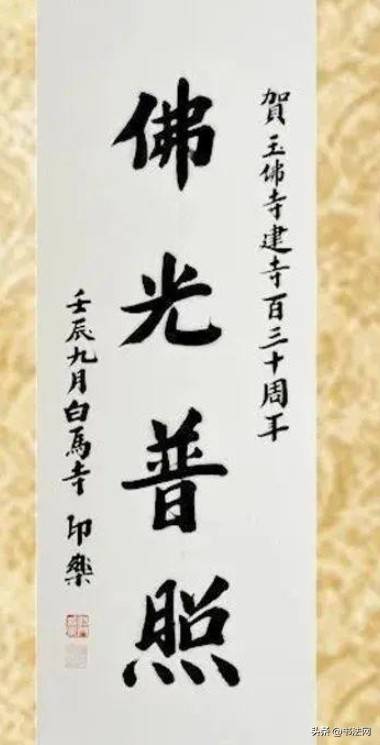 賀玉佛寺建寺百三十周年
佛光普照
壬辰九月白馬寺 印樂
头条@书法网